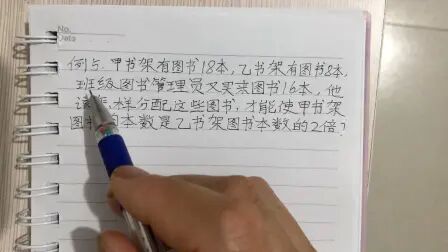 No.
Date
例5. 甲书架有图书18本,乙书架有图书8本,
班级图书管理员又买来图书16本,他
该怎样分配这些图书,才能使甲书架
图书的本数是乙书架图书本数的2倍?